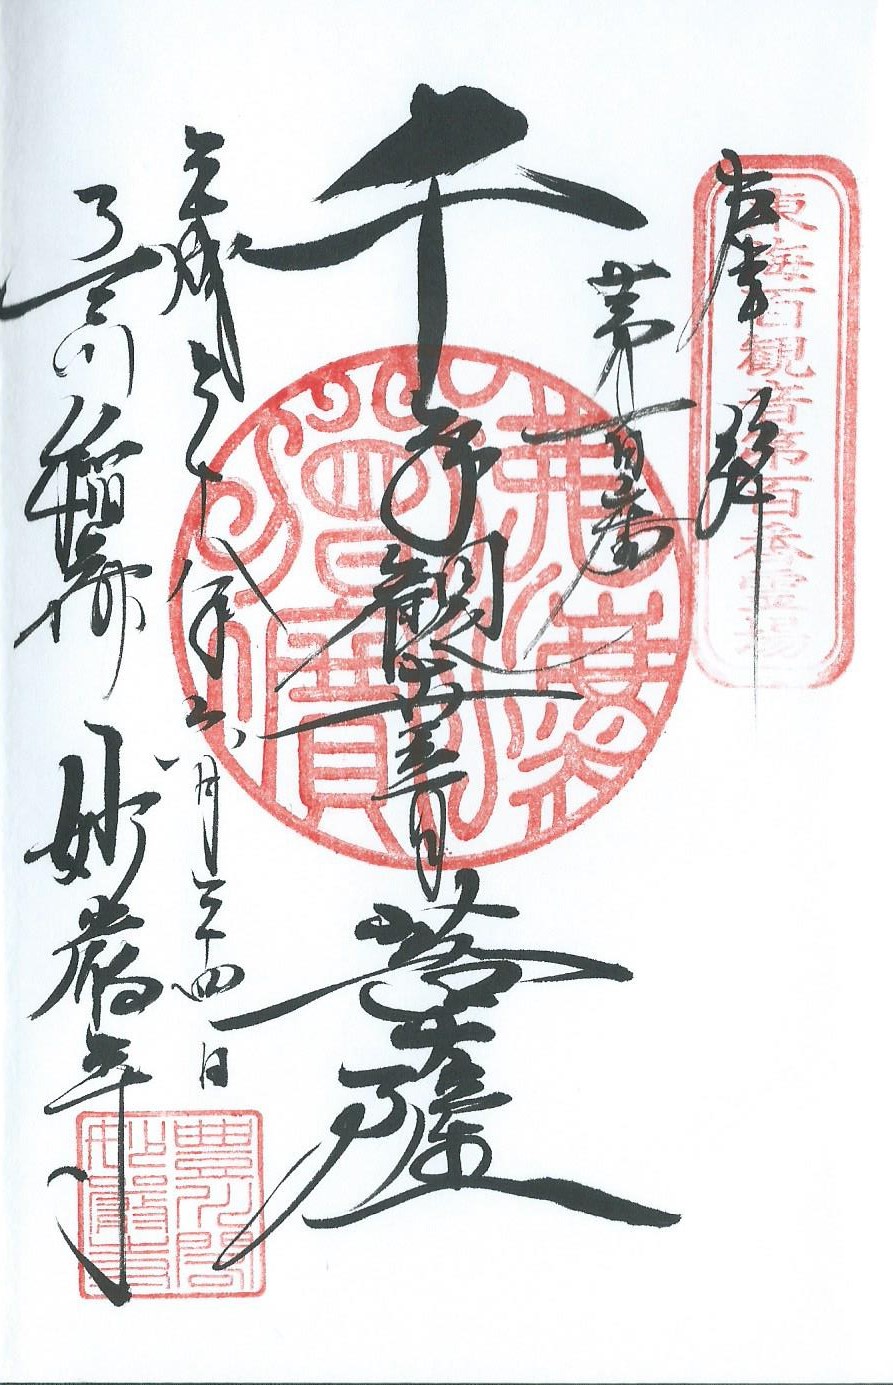 奉拝
東海百観音第百番霊場
第百番
千手観世音菩薩
平成二十八年六月二十四日
豊川稲荷
妙厳寺
佛法僧寳
豊川閣妙嚴寺